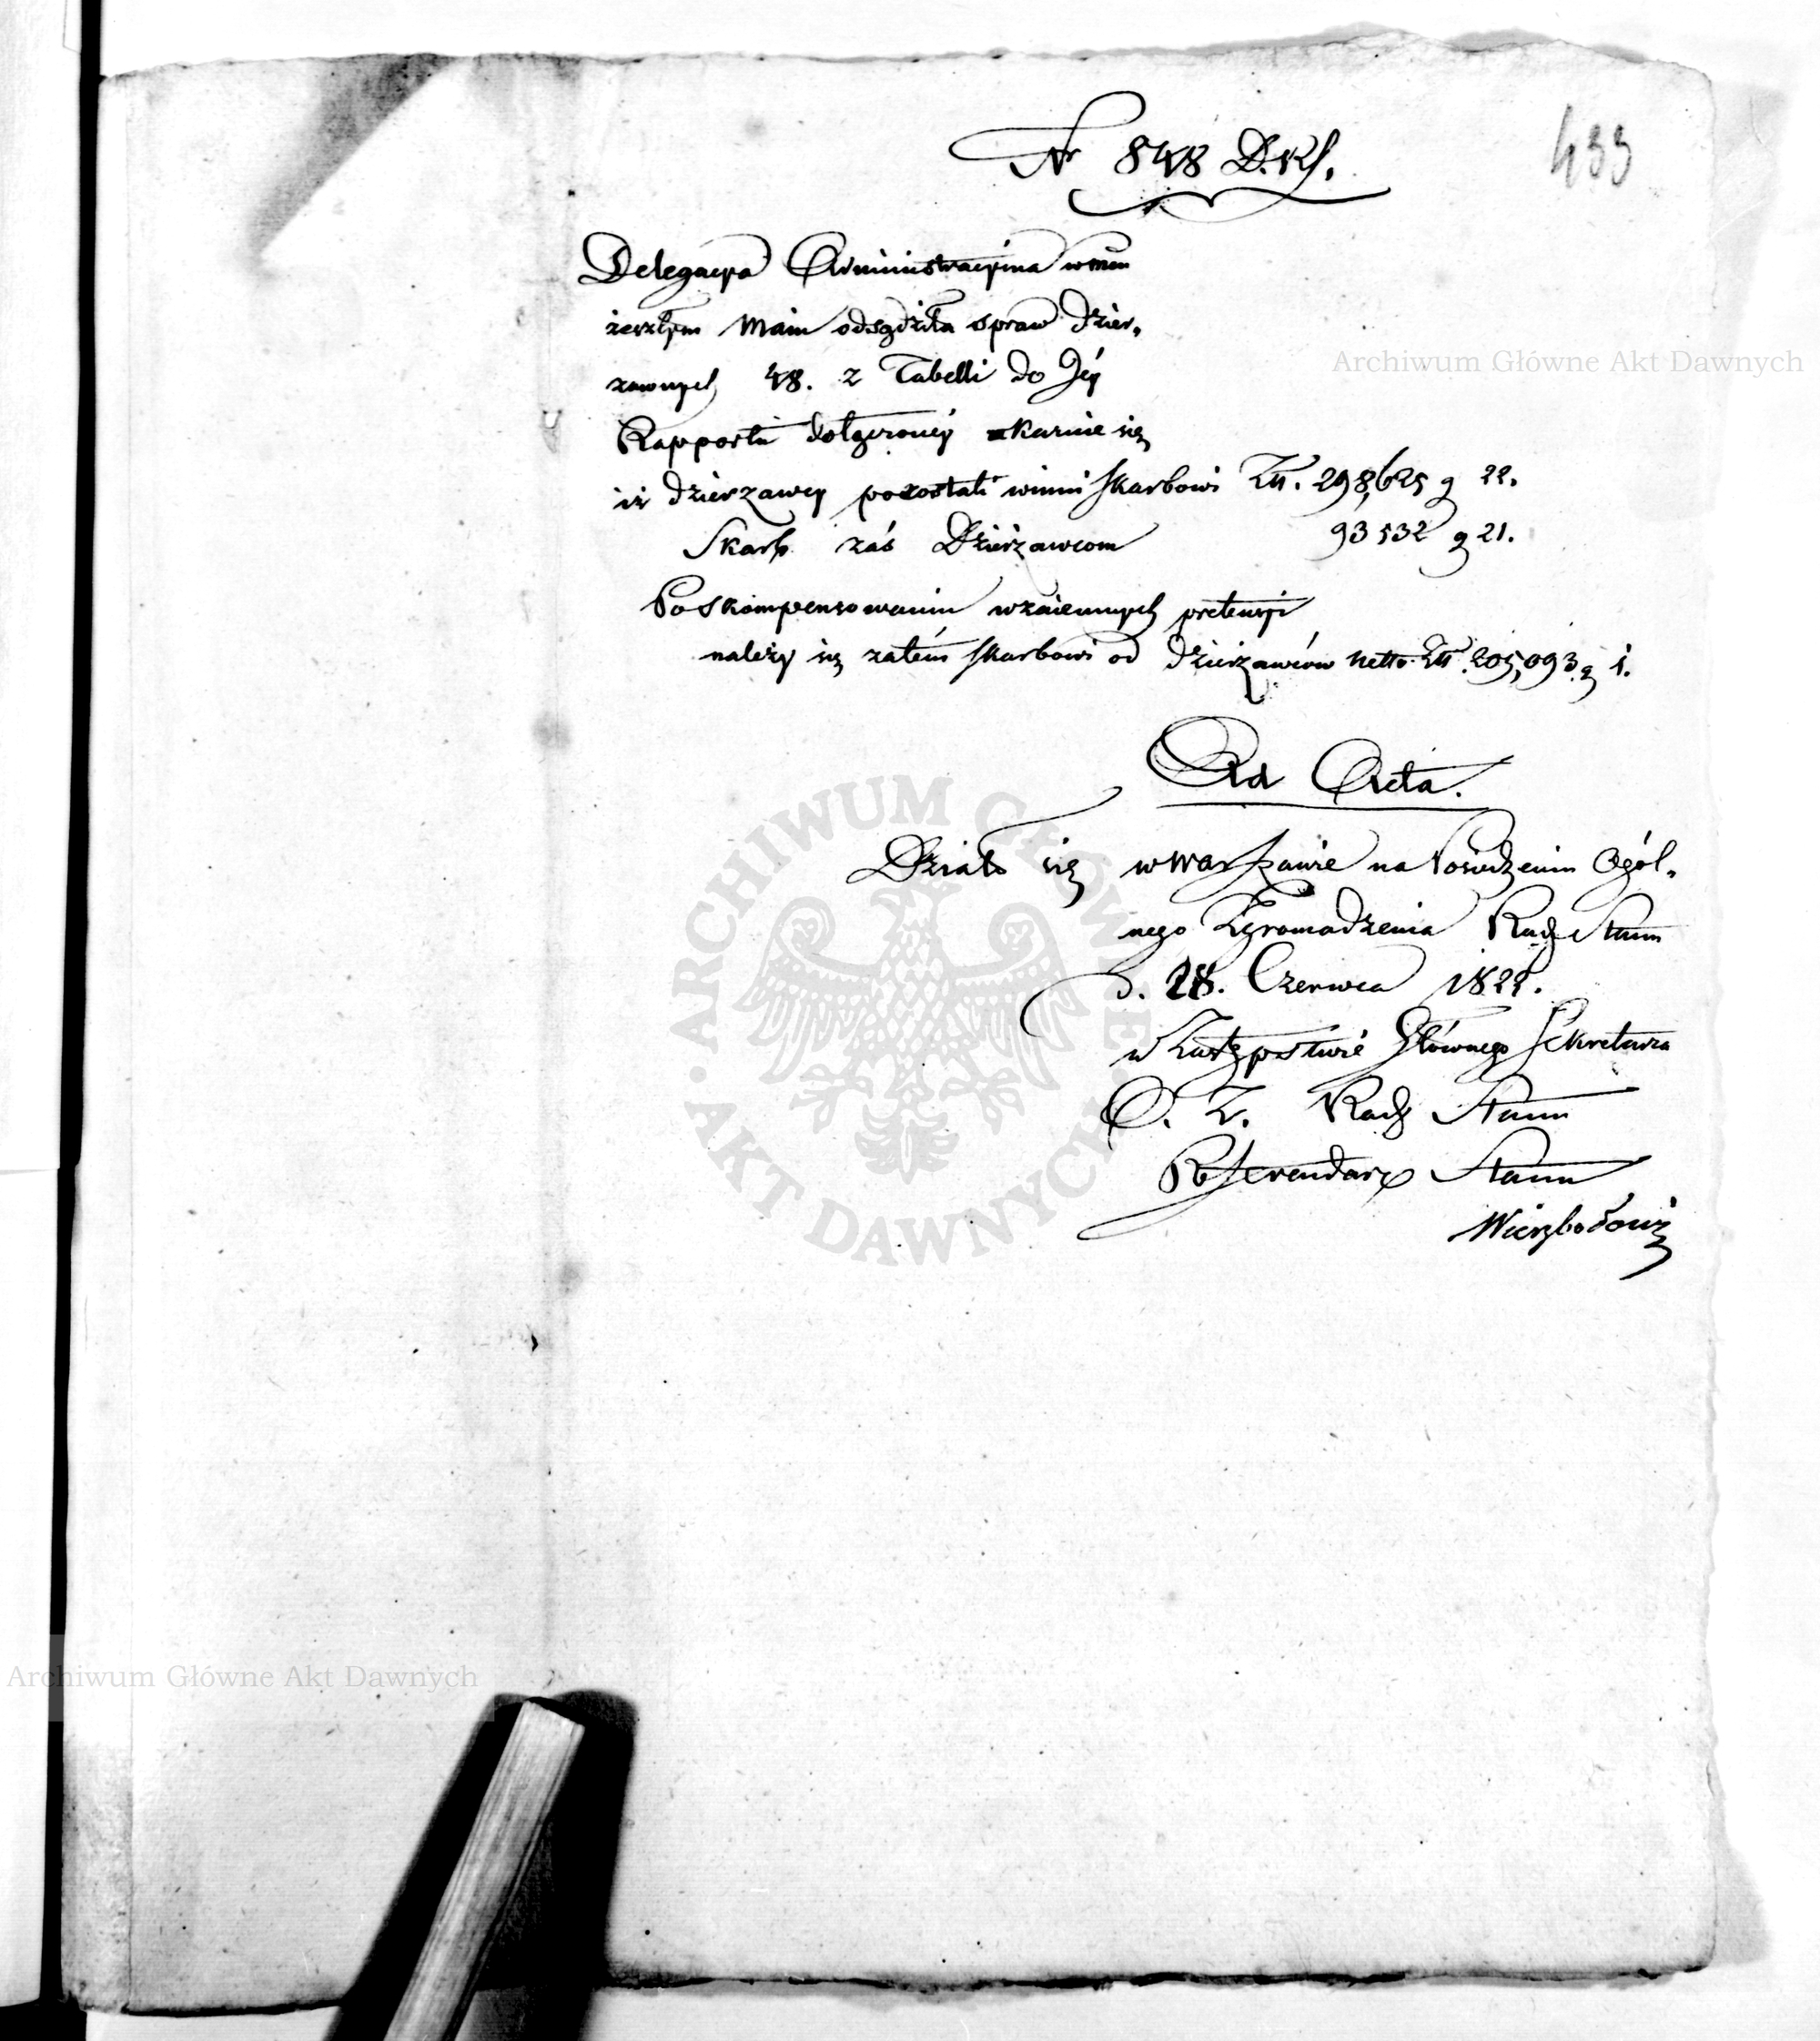 433
Nr 848 D.Kl.
Delegacya Administracyina w mcu
zeszłym Maiu odsądziła spraw dzier„
zawnych 48. z Tabelli do Jéy
Rapportu dołączonéy okazuie się
iż dzierzawcy pozostali winni skarbowi Złł. 298,625 g 22.
Skarb zaś Dzierzawcom 93532 g 21.
Po skompensowaniu wzaiemnych pretensji
należy się zatém skarbowi od dzierzawców netto Złł. 205,093. g 1.
Ad Acta.
Działo się w Warszawie na Posiedzeniu Ogól„
nego Zgromadzenia Rady Stanu
d. 28. Czerwca 1822.
w Zastępstwie Głównego Sekretarza
O. Z. Rady Stanu
Referendarz Stanu
Archiwum Główne Akt Dawnych
ARCHIWUM GŁÓWNE · AKT DAWNYCH ·
Archiwum Główne Akt Dawnych